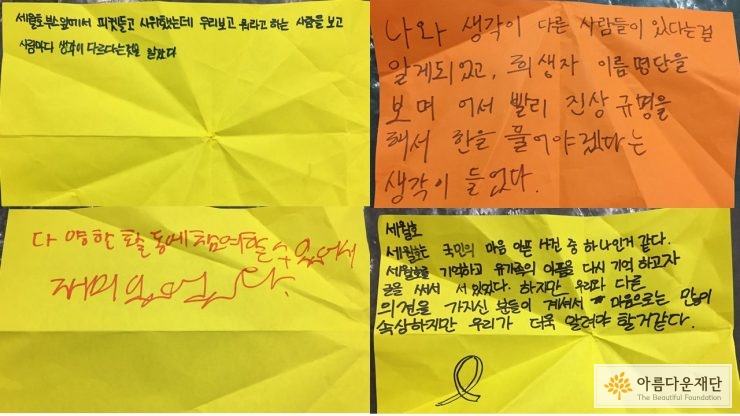 세월호 부스 앞에서 피켓들고 시위했는데 우리보고 뭐라고 하는 사람을 보고
사람마다 생각이 다르다는것을 알았다
나와 생각이 다른 사람들이 있다는걸
알게되었고, 희생자 이름명단을
보며 어서 빨리 진상 규명을
해서 한을 풀어야겠다는
생각이 들었다.
다양한 활동에 참여할 수 있어서
재미있었다.
세월호
세월호는 국민의 마음 아픈 사건 중 하나인거 같다.
세월호를 기억하고 유가족의 아픔을 다시 기억 하고자
글을 써서 서있었다. 하지만 우리와 다른
의견을 가지신 분들이 계셔서 마음으로는 많이
속상하지만 우리가 더욱 알려야 할거같다.
아름다운재단
The Beautiful Foundation